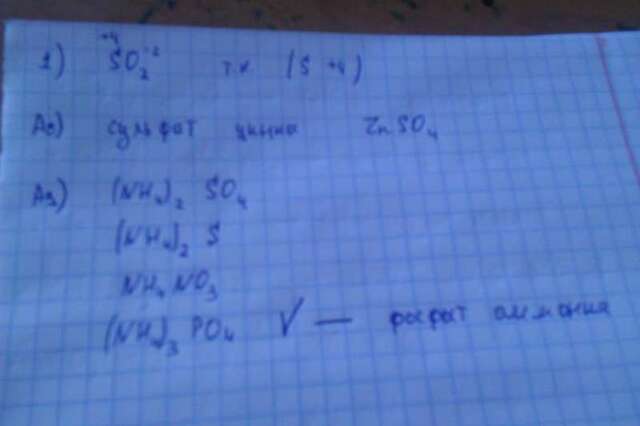 1) S⁺⁴O₂⁻² т.к (S +4)
А2) сульфат цинка ZnSO₄
А3) (NH₄)₂ SO₄
(NH₄)₂ S
NH₄ NO₃
(NH₄)₃ PO₄ V — фосфат аммония